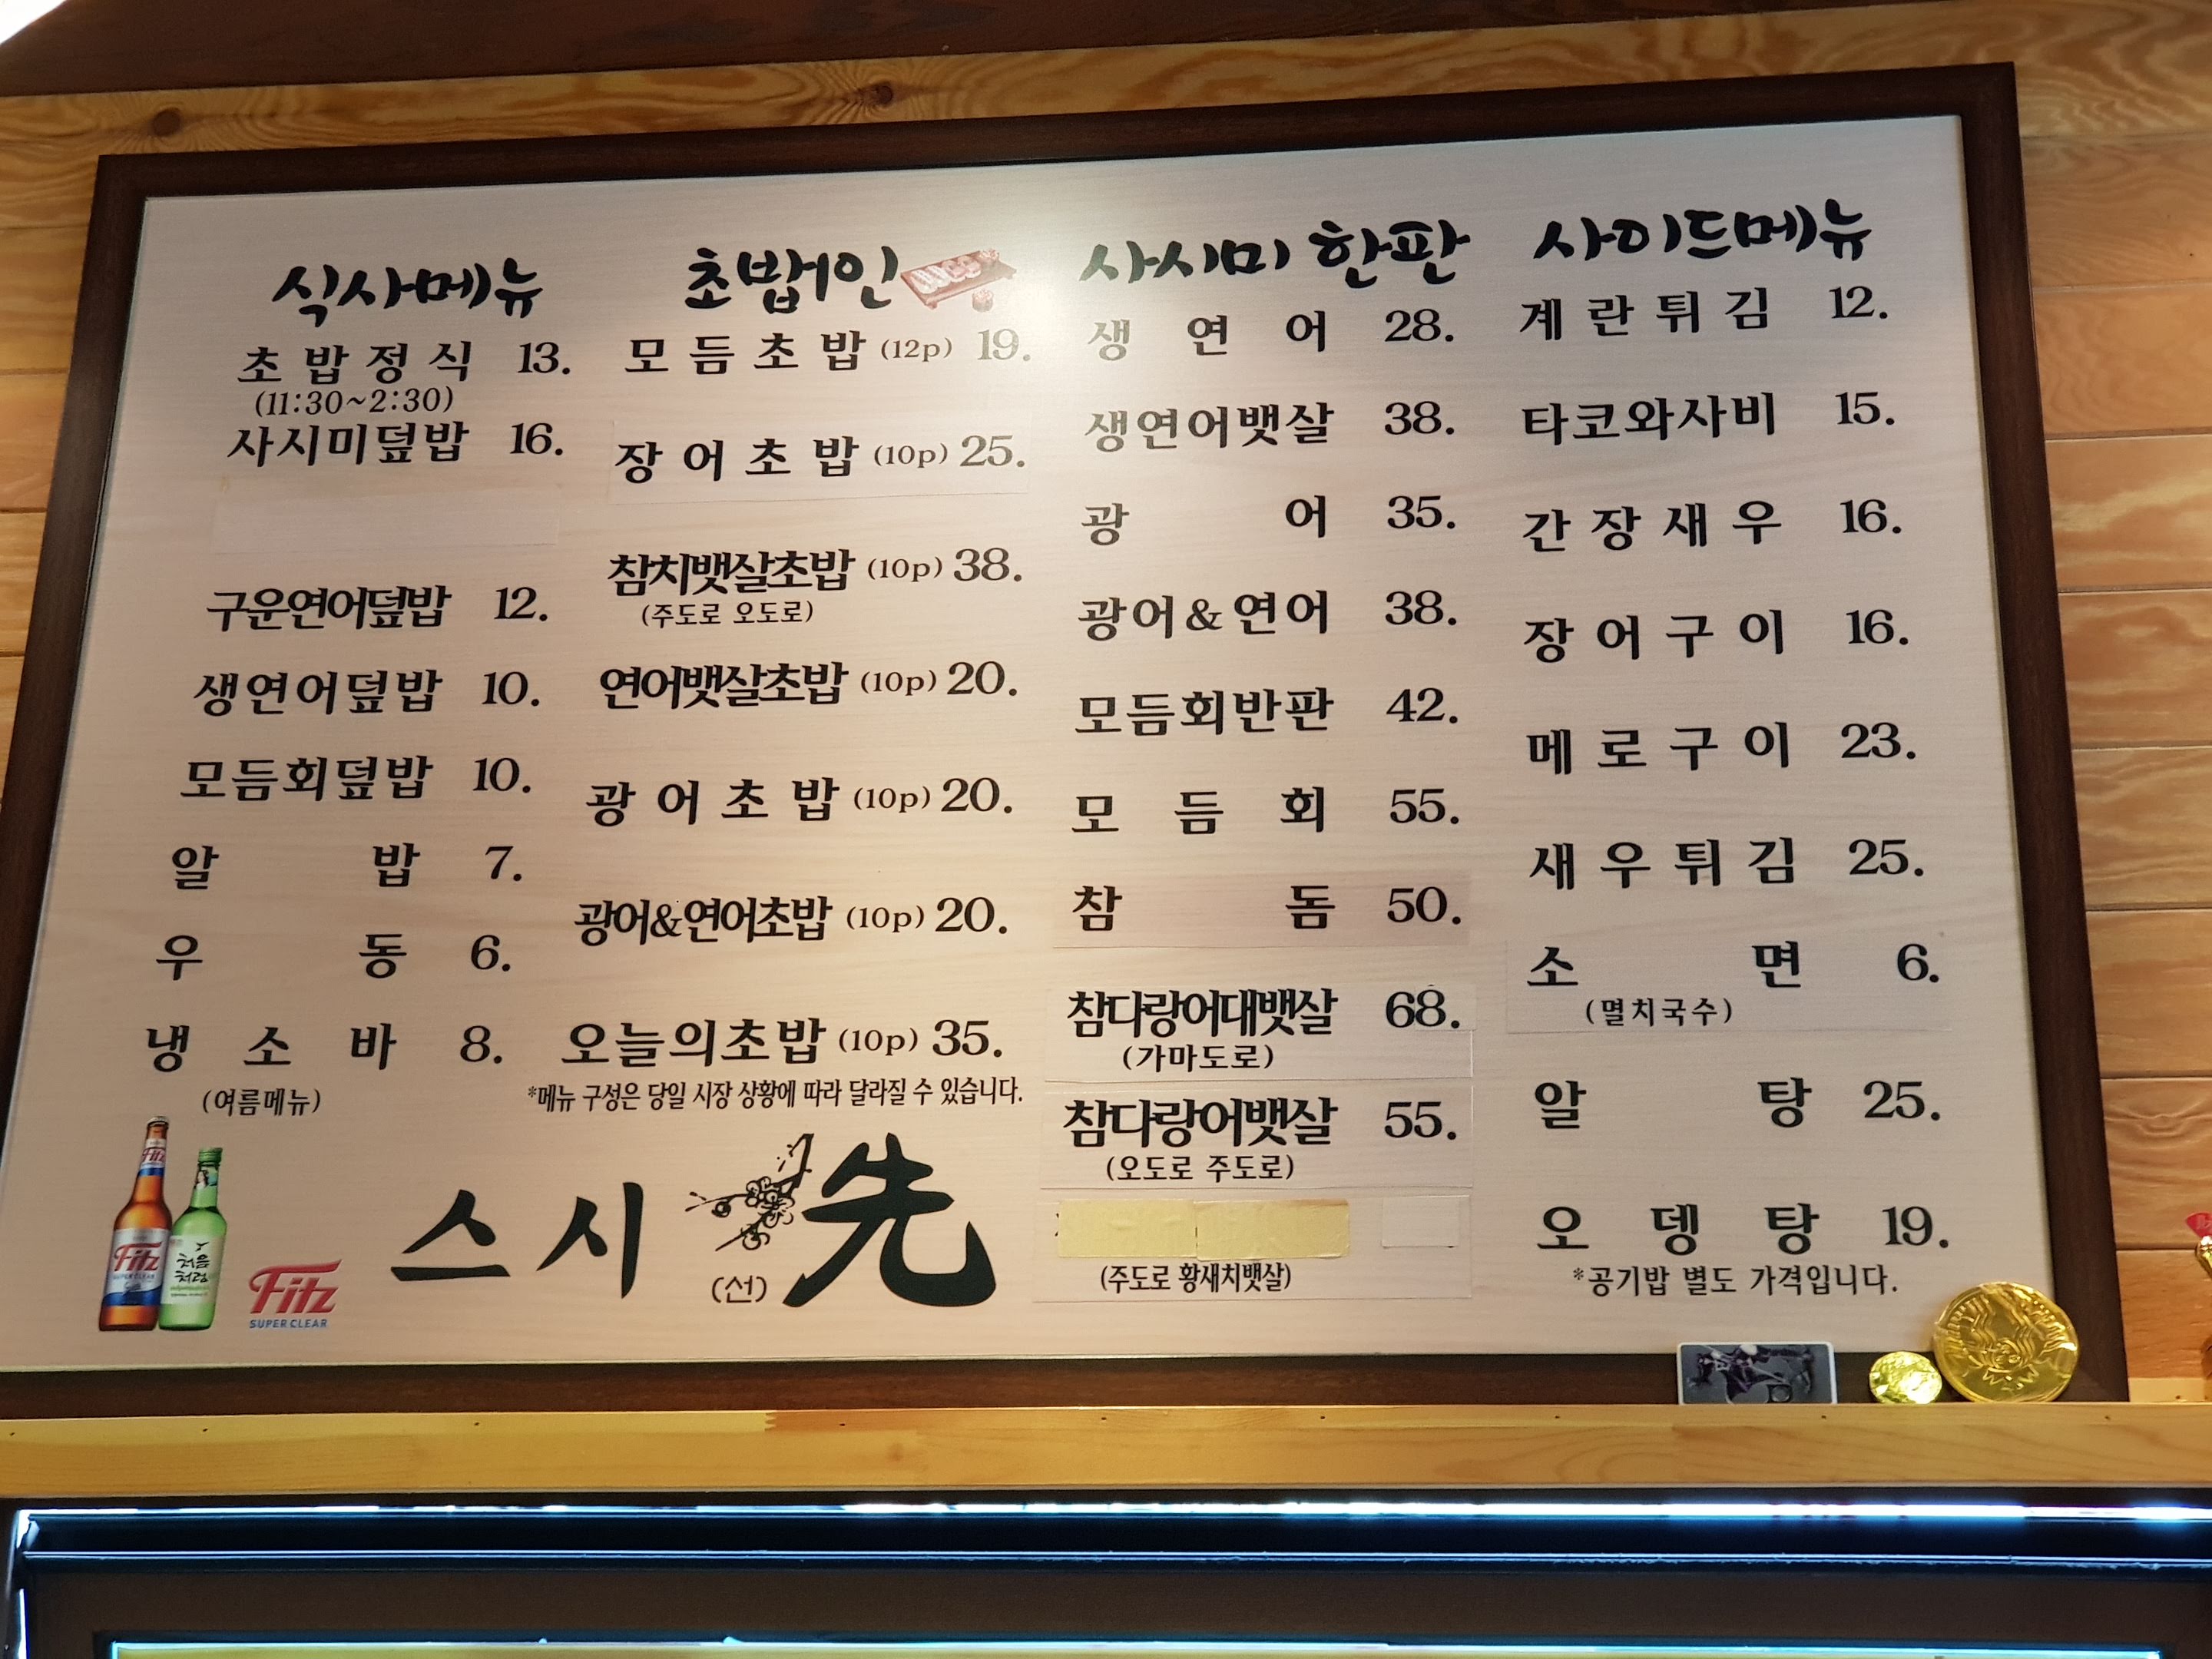 식사메뉴
초밥정식 13.
(11:30~2:30)
사시미덮밥 16.
구운연어덮밥 12.
생연어덮밥 10.
모듬회덮밥 10.
알밥 7.
우동 6.
냉소바 8.
(여름메뉴)
초밥1인
모듬초밥 (12p) 19.
장어초밥 (10p) 25.
참치뱃살초밥 (10p) 38.
(주도로 오도로)
연어뱃살초밥 (10p) 20.
광어초밥 (10p) 20.
광어&연어초밥 (10p) 20.
오늘의초밥 (10p) 35.
*메뉴 구성은 당일 시장 상황에 따라 달라질 수 있습니다.
사시미 한판
생연어 28.
생연어뱃살 38.
광어 35.
광어&연어 38.
모듬회반판 42.
모듬회 55.
참돔 50.
참다랑어대뱃살 68.
(가마도로)
참다랑어뱃살 55.
(오도로 주도로)
(주도로 황새치뱃살)
사이드메뉴
계란튀김 12.
타코와사비 15.
간장새우 16.
장어구이 16.
메로구이 23.
새우튀김 25.
소면 6.
(멸치국수)
알탕 25.
오뎅탕 19.
*공기밥 별도 가격입니다.
스시 先
(선)
Fitz
Fitz
SUPER CLEAR
처음
처럼
Fitz
SUPER CLEAR